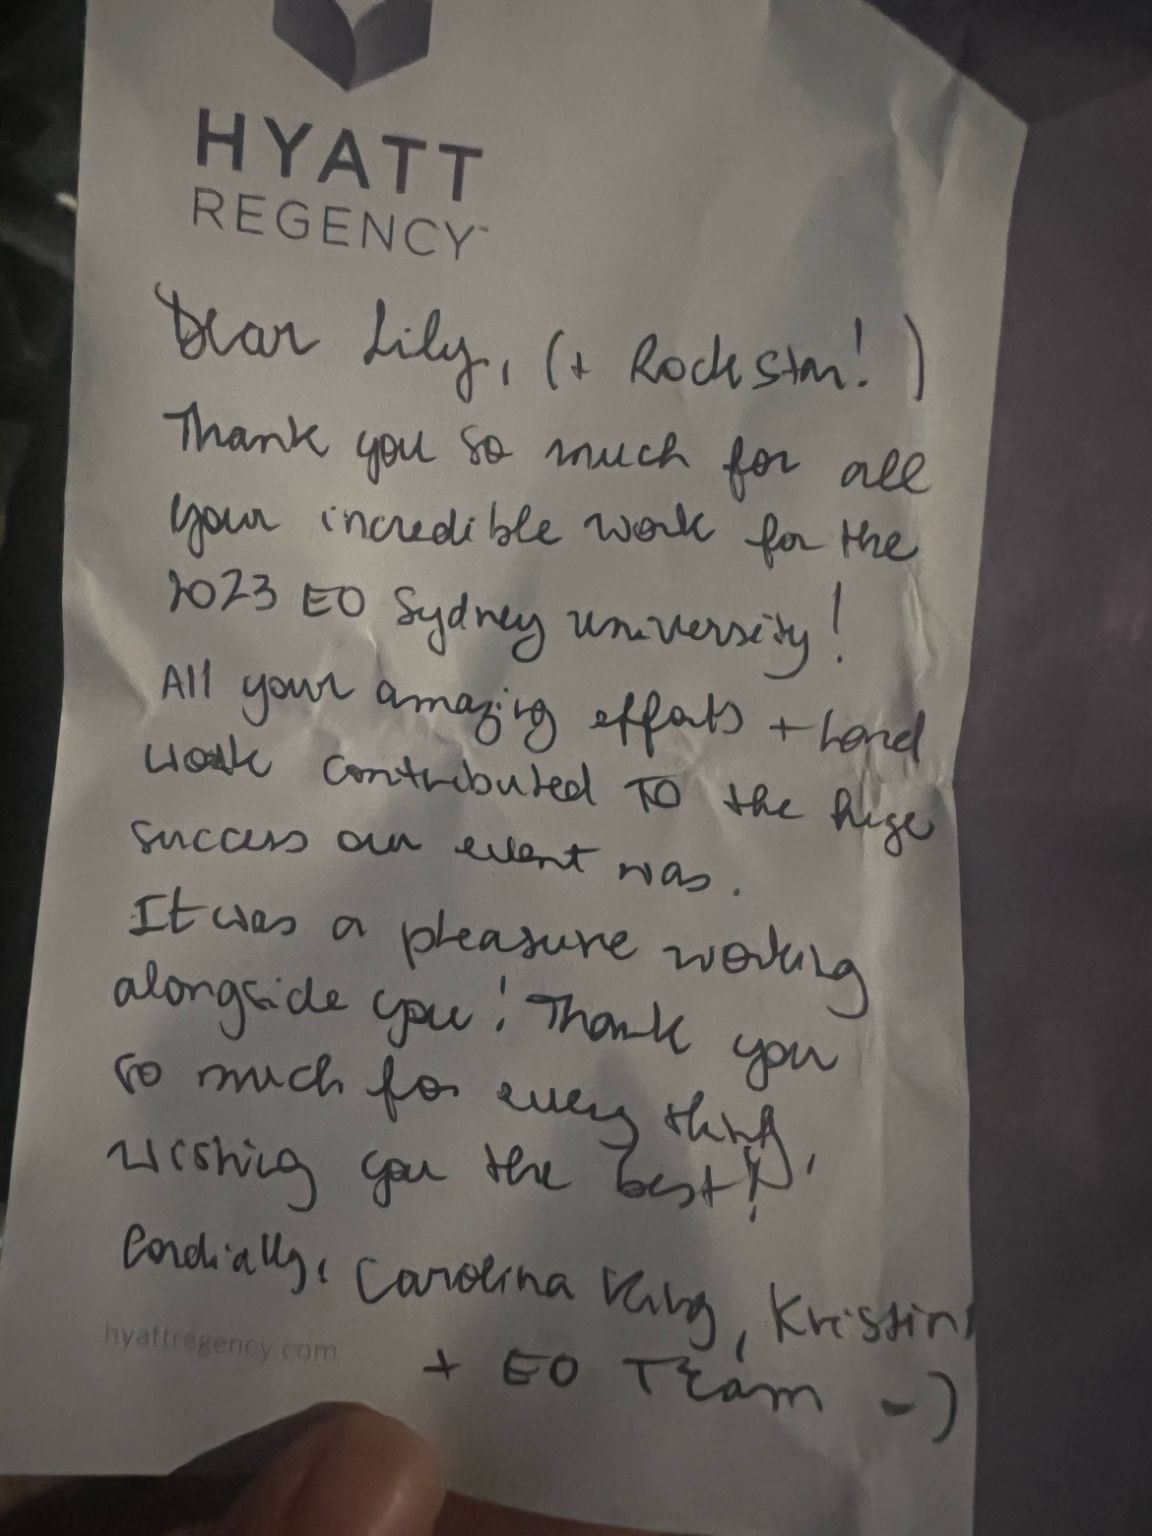 HYATT
REGENCY™
Dear Lily, (+ Rockstar!)
Thank you so much for all
your incredible work for the
2023 EO Sydney university!
All your amazing efforts + hard
work contributed TO the huge
success our event was.
It was a pleasure working
alongside you! Thank you
so much for every thing,
wishing you the best!
Cordially, Carolina King, Kristin
hyattregency.com
+ EO Team -)